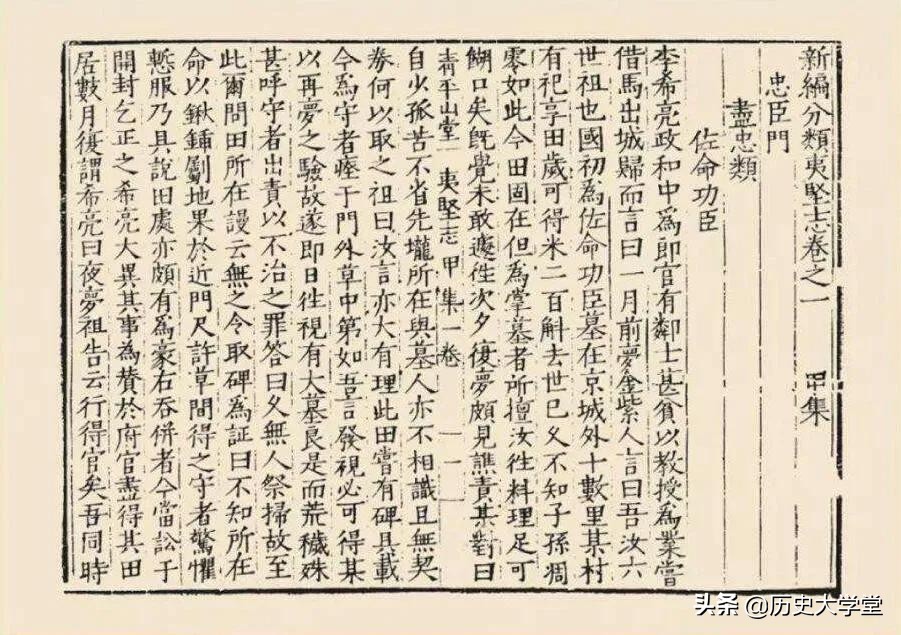 新編分類夷堅志卷之一 甲集
忠臣門
盡忠類
佐命功臣
李希亮政和中為郎官有鄰士甚貧以教授為業嘗
借馬出城歸而言曰一月前夢金紫人言曰吾汝六
世祖也國初為佐命功臣墓在京城外十數里某村
有祀享田歲可得米二百斛去世已久不知子孫凋
零如此今田固在但為掌墓者所擅汝徃料理足可
餬口矣既覺未敢遽徃次夕復夢頗見譙責某對曰
青平山堂 夷堅志 甲集一卷 一
自少孤苦不省先壠所在與墓人亦不相識且無契
券何以取之祖曰汝言亦大有理此田嘗有碑具載
令為守者瘞于門外草中第如吾言發視必可得某
以再夢之驗故遂即日徃視有大墓良是而荒穢殊
甚呼守者出責以不治之罪答曰久無人祭掃故至
此爾問田所在謾云無之令取碑為証曰不知所在
命以鍬鍤劚地果於近門尺許草間得之守者驚懼
慙服乃具說田處亦頗有為豪右吞併者今當訟于
開封乞正之希亮大異其事為賛於府官盡得其田
居數月復謂希亮曰夜夢祖告云行得官矣吾同時
头条 @历史大学堂